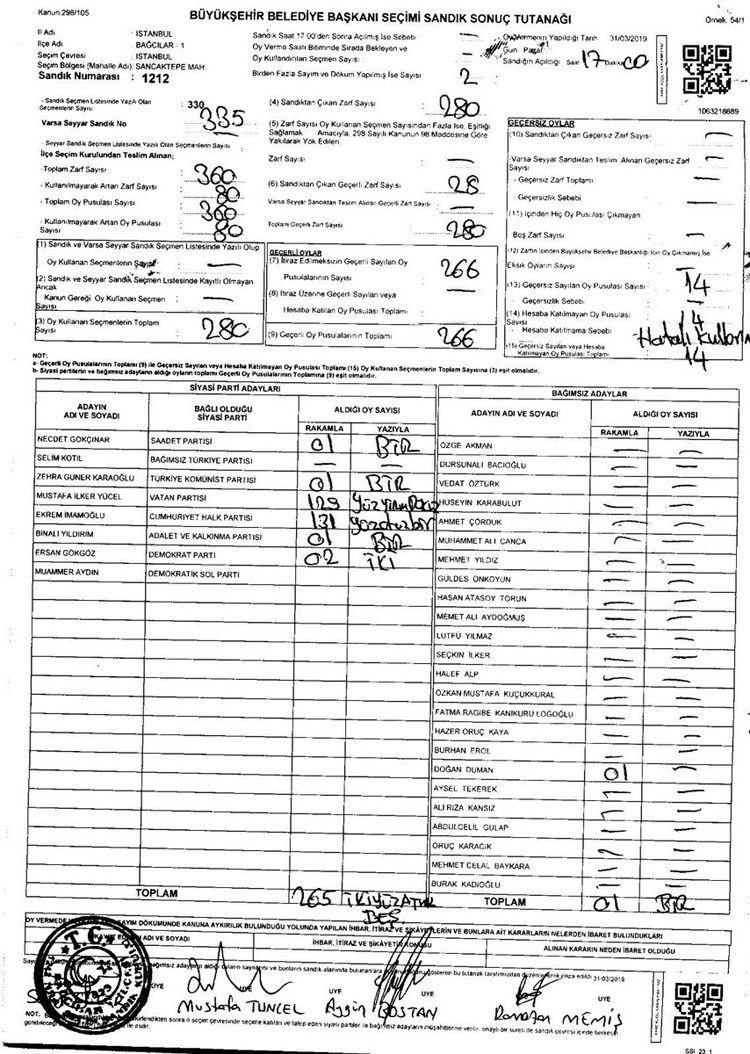 Kanun 298/105
BÜYÜKŞEHİR BELEDİYE BAŞKANI SEÇİMİ SANDIK SONUÇ TUTANAĞI
Örnek. 54/1
İl Adı : İSTANBUL
İlçe Adı : BAĞCILAR - 1
Seçim Çevresi : İSTANBUL
Seçim Bölgesi (Mahalle Adı): SANCAKTEPE MAH.
Sandık Numarası : 1212
Sandık Saat 17.00'den Sonra Açılmış İse Sebebi : —
Oy Verme Saati Bitiminde Sırada Bekleyen ve
Oy Kullandırılan Seçmen Sayısı : —
Birden Fazla Sayım ve Döküm Yapılmış İse Sayısı 2
Oy Vermenin Yapıldığı Tarih 31/03/2019
Gün Pazar
Sandığın Açıldığı Saat 17 Dakika 00
1063218689
- Sandık Seçmen Listesinde Yazılı Olan
Seçmenlerin Sayısı : 330 335
Varsa Seyyar Sandık No —
- Seyyar Sandık Seçmen Listesinde Yazılı Olan Seçmenlerin Sayısı :
İlçe Seçim Kurulundan Teslim Alınan;
-Toplam Zarf Sayısı : 360
- Kullanılmayarak Artan Zarf Sayısı : 80
- Toplam Oy Pusulası Sayısı : 360
- Kullanılmayarak Artan Oy Pusulası Sayısı : 80
(4) Sandıktan Çıkan Zarf Sayısı : 280
(5) Zarf Sayısı Oy Kullanan Seçmen Sayısından Fazla İse, Eşitliği
Sağlamak Amacıyla, 298 Sayılı Kanunun 98 Maddesine Göre
Yakılarak Yok Edilen
Zarf Sayısı : —
(6) Sandıktan Çıkan Geçerli Zarf Sayısı : 28
Varsa Seyyar Sandıktan Teslim Alınan Geçerli Zarf Sayısı : —
Toplam Geçerli Zarf Sayısı : 280
GEÇERSİZ OYLAR
(10) Sandıktan Çıkan Geçersiz Zarf Sayısı : —
-Varsa Seyyar Sandıktan Teslim Alınan Geçersiz Zarf
Sayısı : —
- Geçersiz Zarf Toplamı : —
- Geçersizlik Sebebi : —
(11) İçinden Hiç Oy Pusulası Çıkmayan
Boş Zarf Sayısı : —
(12) Zarfın İçinden Büyükşehir Belediye Başkanlığı İçin Oy Çıkmamış İse
Eksik Oyların Sayısı : —
(13) Geçersiz Sayılan Oy Pusulası Sayısı : 14
Geçersizlik Sebebi : —
(14) Hesaba Katılmayan Oy Pusulası
Sayısı 14
- Hesaba Katılmama Sebebi : Hatalı Kullanım
(15) Geçersiz Sayılan veya Hesaba
Katılmayan Oy Pusulası Toplamı 14
(1) Sandık ve Varsa Seyyar Sandık Seçmen Listesinde Yazılı Olup
Oy Kullanan Seçmenlerin Sayısı : —
(2) Sandık ve Seyyar Sandık Seçmen Listesinde Kayıtlı Olmayan
Ancak
Kanun Gereği Oy Kullanan Seçmen
Sayısı : —
(3) Oy Kullanan Seçmenlerin Toplam
Sayısı : 280
GEÇERLİ OYLAR
(7) İtiraz Edilmeksizin Geçerli Sayılan Oy
Pusulalarının Sayısı : 266
(8) İtiraz Üzerine Geçerli Sayılan veya
Hesaba Katılan Oy Pusulası Toplamı : —
(9) Geçerli Oy Pusulalarının Toplamı : 266
NOT;
a- Geçerli Oy Pusulalarının Toplamı (9) ile Geçersiz Sayılan veya Hesaba Katılmayan Oy Pusulası Toplamı (15) Oy Kullanan Seçmenlerin Toplam Sayısına (3) eşit olmalıdır.
b- Siyasi partilerin ve bağımsız adayların aldığı oyların toplamı Geçerli Oy Pusulalarının Toplamına (9) eşit olmalıdır.
SİYASİ PARTİ ADAYLARI
ADAYIN ADI VE SOYADI BAĞLI OLDUĞU SİYASİ PARTİ ALDIĞI OY SAYISI RAKAMLA YAZIYLA
NECDET GÖKÇINAR SAADET PARTİSİ 01 BİR
SELİM KOTİL BAĞIMSIZ TÜRKİYE PARTİSİ — —
ZEHRA GÜNER KARAOĞLU TÜRKİYE KOMÜNİST PARTİSİ 01 BİR
MUSTAFA İLKER YÜCEL VATAN PARTİSİ 129 Yüzyirmidokuz
EKREM İMAMOĞLU CUMHURİYET HALK PARTİSİ 131 yüzotuzbir
BİNALİ YILDIRIM ADALET VE KALKINMA PARTİSİ 01 BİR
ERSAN GÖKGÖZ DEMOKRAT PARTİ 02 İKİ
MUAMMER AYDIN DEMOKRATİK SOL PARTİ
TOPLAM 265 İKİYÜZATMIŞ BEŞ
BAĞIMSIZ ADAYLAR
ADAYIN ADI VE SOYADI ALDIĞI OY SAYISI RAKAMLA YAZIYLA
ÖZGE AKMAN — —
DURSUNALİ BACIOĞLU — —
VEDAT ÖZTÜRK — —
HÜSEYİN KARABULUT — —
AHMET ÇÖRDÜK — —
MUHAMMET ALİ CANCA — —
MEHMET YILDIZ — —
GÜLDES ÖNKOYUN — —
HASAN ATASOY TORUN — —
MEMET ALİ AYDOĞMUŞ — —
LUTFÜ YILMAZ — —
SEÇKİN İLKER — —
HALEF ALP — —
ÖZKAN MUSTAFA KÜÇÜKKURAL — —
FATMA RAGİBE KANIKURU LOĞOĞLU — —
HAZER ORUÇ KAYA — —
BURHAN EROL — —
DOĞAN DUMAN 01 —
AYSEL TEKEREK — —
ALİ RIZA KANSIZ — —
ABDULCELİL GÜLAP — —
ORUÇ KARACIK — —
MEHMET CELAL BAYKARA — —
BURAK KADIOĞLU — —
TOPLAM 01 BİR
OY VERMEDE VE SAYIM DÖKÜMÜNDE KANUNA AYKIRILIK BULUNDUĞU YOLUNDA YAPILAN İHBAR, İTİRAZ VE ŞİKAYETLERİN VE BUNLARA AİT KARARLARIN NELERDEN İBARET BULUNDUKLARI
ADI VE SOYADI
İHBAR, İTİRAZ VE ŞİKAYETİN KONUSU
ALINAN KARARIN NEDEN İBARET OLDUĞU
bağımsız adayların aldığı oyların sayılarını ve bunların sandık alanında bulunanlara gösteren bu tutanak tarafımızdan düzenlenerek imza edildi 31/03/2019
ÜYE ÜYE ÜYE
Mustafa TUNCEL Aygün BOSTAN Ramazan MEMİŞ
T.C.
SSI_23_1